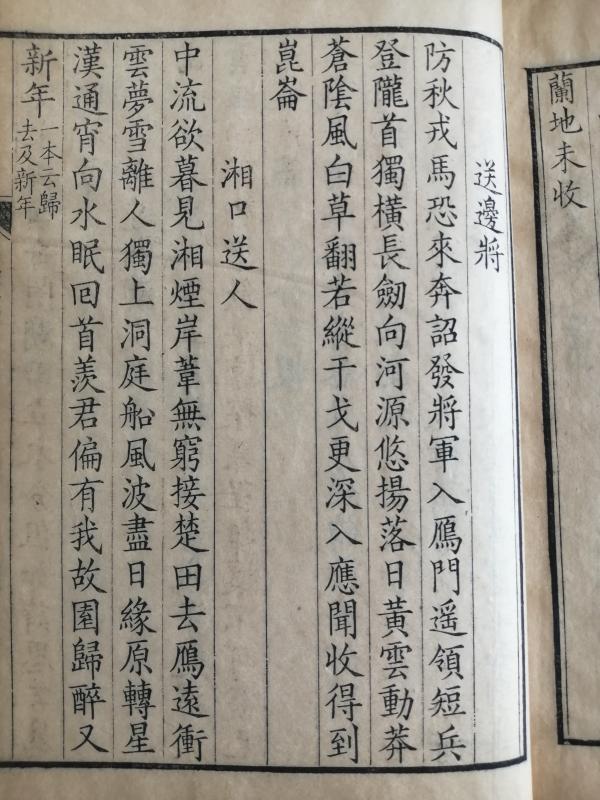 蘭地未收
送邊將
防秋戎馬恐來奔詔發將軍入鴈門遥領短兵
登隴首獨橫長劒向河源悠揚落日黃雲動莽
蒼陰風白草翻若縱干戈更深入應聞收得到
崑崙
湘口送人
中流欲暮見湘煙岸葦無窮接楚田去鴈遠衝
雲夢雪離人獨上洞庭船風波盡日緣原轉星
漢通宵向水眠回首羨君偏有我故園歸醉又
新年一本云歸去及新年